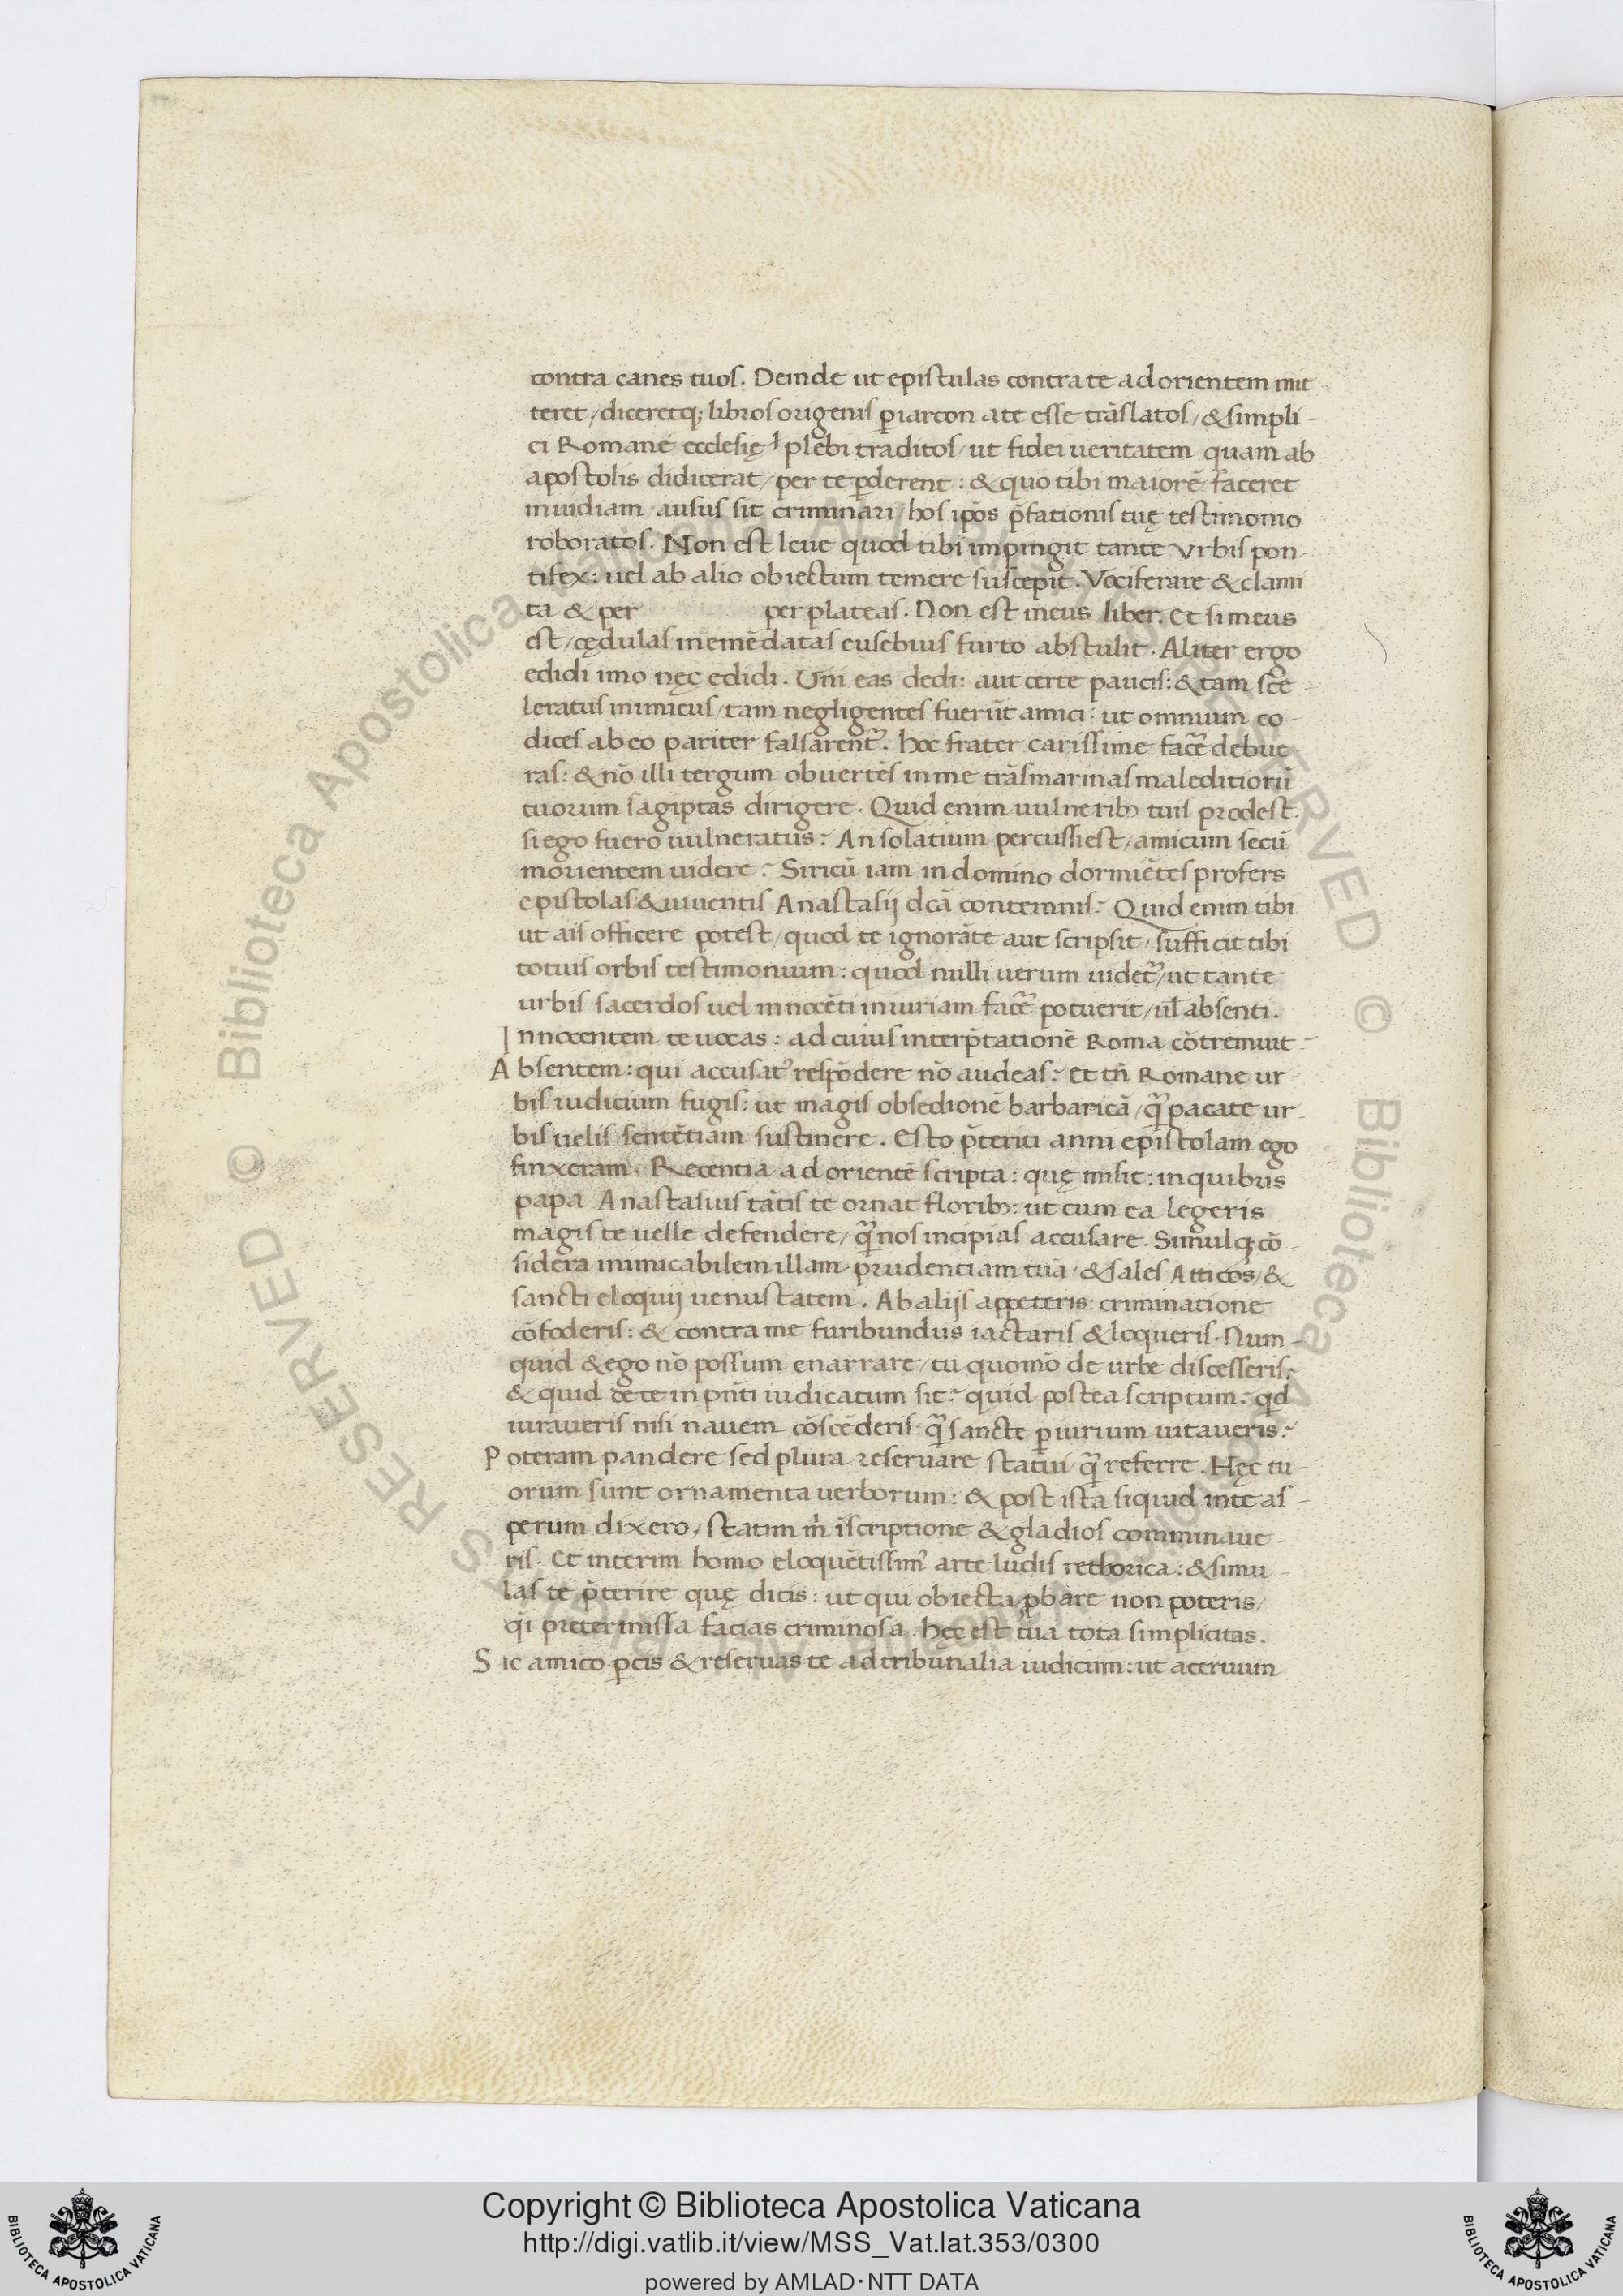 contra canes tuos. Deinde ut epistulas contra te ad orientem mit
teret/ diceretq; libros origenis p̱iarcon a te esse trāslatos/ & simpli-
ci Romane ecclesię plebi traditos/ ut fidei ueritatem quam ab
apostolis didicerat/ per te ꝑderent: & quo tibi maiorē faceret
inuidiam/ ausus sit criminari/ hos ip̄os p̄fationis tuę testimonio
roboratos. Non est leue quod tibi impingit tante Vrbis pon-
tifex: uel ab alio obiectum temere suscepit. Vociferare & clami
ta & per per plateas. Non est meus liber. Et si meus
est/ cędulas inemēdatas eusebius furto abstulit. Aliter ergo
edidi imo nęc edidi. Uni eas dedi: aut certe paucis: & tam sce-
leratus inimicus/ tam negligentes fuerūt amici: ut omnium co-
dices ab eo pariter falsarent᷑. hoc frater carissime fac̄e debue-
ras: & nō illi tergum obuertēs in me trāsmarinas maleditiorū
tuorum sagiptas dirigere. Quid enim uulnerib; tuis prodest.
si ego fuero uulneratus? An solatium percussi est/ amicum secū
morientem uidere? Siricū iam in domino dormiētes profers
epistolas & uiuentis Anastasij dcā contemnis? Quid enim tibi
ut ais officere potest/ quod te ignorāte aut scripsit/ sufficit tibi
totius orbis testimonium: quod nulli uerum uidet᷑/ ut tante
urbis sacerdos uel innocēti iniuriam fac̄e potuerit/ ul̄ absenti.
Innocentem te uocas: ad cuius interp̄tationē Roma cōtremuit?
Absentem: qui accusat᷑ respōdere nō audeas? Et tn̄ Romane ur-
bis iudicium fugis: ut magis obsedionē barbaricā/ q̄ pacate ur-
bis uelis sentētiam sustinere. Esto p̄teriti anni epistolam ego
finxeram. Recentia ad orientē scripta: quę misit: in quibus
papa Anastasius tātis te ornat florib;: ut cum ea legeris
magis te uelle defendere/ q̄ nos incipias accusare. Simulq; cō-
sidera inimicabilem illam prudentiam tuā/ & sales Atticos/ &
sancti eloquij uenustatem. Ab alijs appeteris: criminatione
cōfoderis: & contra me furibundus iactaris & loqueris. Num-
quid & ego nō possum enarrare/ tu quomō de urbe discesseris?
& quid de te in pn̄ti iudicatum sit? quid postea scriptum? qd
iuraueris nisi nauem cōscēderis: q̄ sancte ꝑiurium uitaueris?
Poteram pandere sed plura reseruare statui q̄ referre. Hęc tu-
orum sunt ornamenta uerborum: & post ista siquid in te as-
perum dixero/ statim m̄ īscriptione & gladios comminaue-
ris. Et interim homo eloquētissim᷒ arte ludis rethorica: & simu-
las te p̄terire quę dicis: ut qui obiecta ꝓbare non poteris/
q̄i pretermissa facias criminosa. hęc est tua tota simplicitas.
Sic amico ꝑcis & reseruas te ad tribunalia iudicum: ut aceruum
Copyright © Biblioteca Apostolica Vaticana
http://digi.vatlib.it/view/MSS_Vat.lat.353/0300
powered by AMLAD·NTT DATA